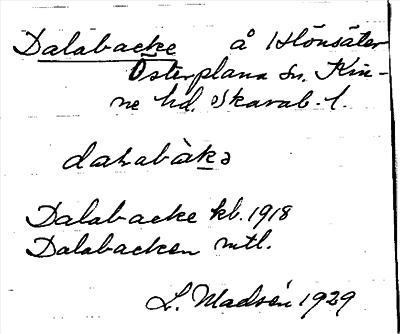 Dalabacke å Hönsäter
Österplana sn. Kin-
ne hd. Skarab. l.
dalabàkə
Dalabacke kb. 1918
Dalabacken mtl.
L. Madsén 1929